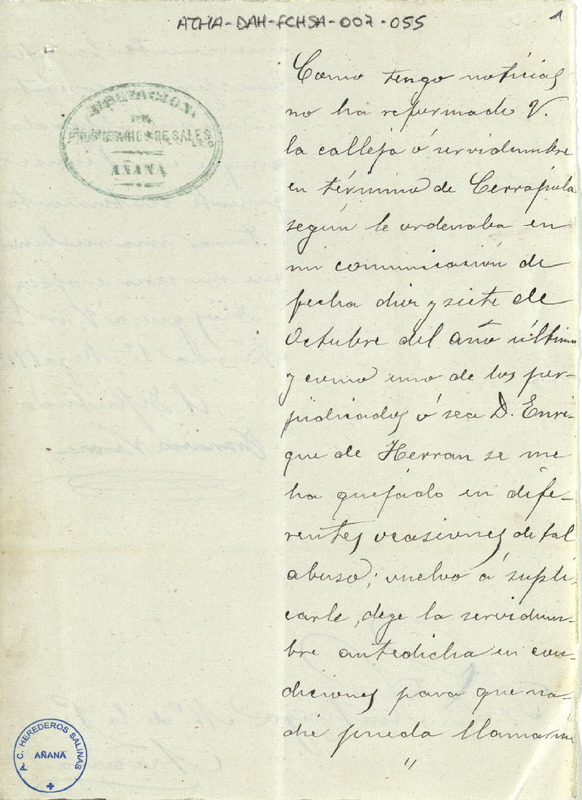 ATHA-DAH-FCHSA-007-055
1
DIPUTACION
DE
PROPIETARIOS DE SALES
AÑANA
Como tengo noticias
no ha reformado V.
la calleja ó servidumbre
en término de Cerrapula
según le ordenaba en
mi comunicación de
fecha diez y siete de
Octubre del año último
y como uno de los per-
judicados ó sea D. Enri-
que de Herran se me
ha quejado en dife-
rentes ocasiones de tal
abuso; vuelvo á supli-
carle, dege la servidum-
bre antedicha en con-
diciones para que na-
die pueda llamarme
"
A. C. HEREDEROS SALINAS
AÑANA